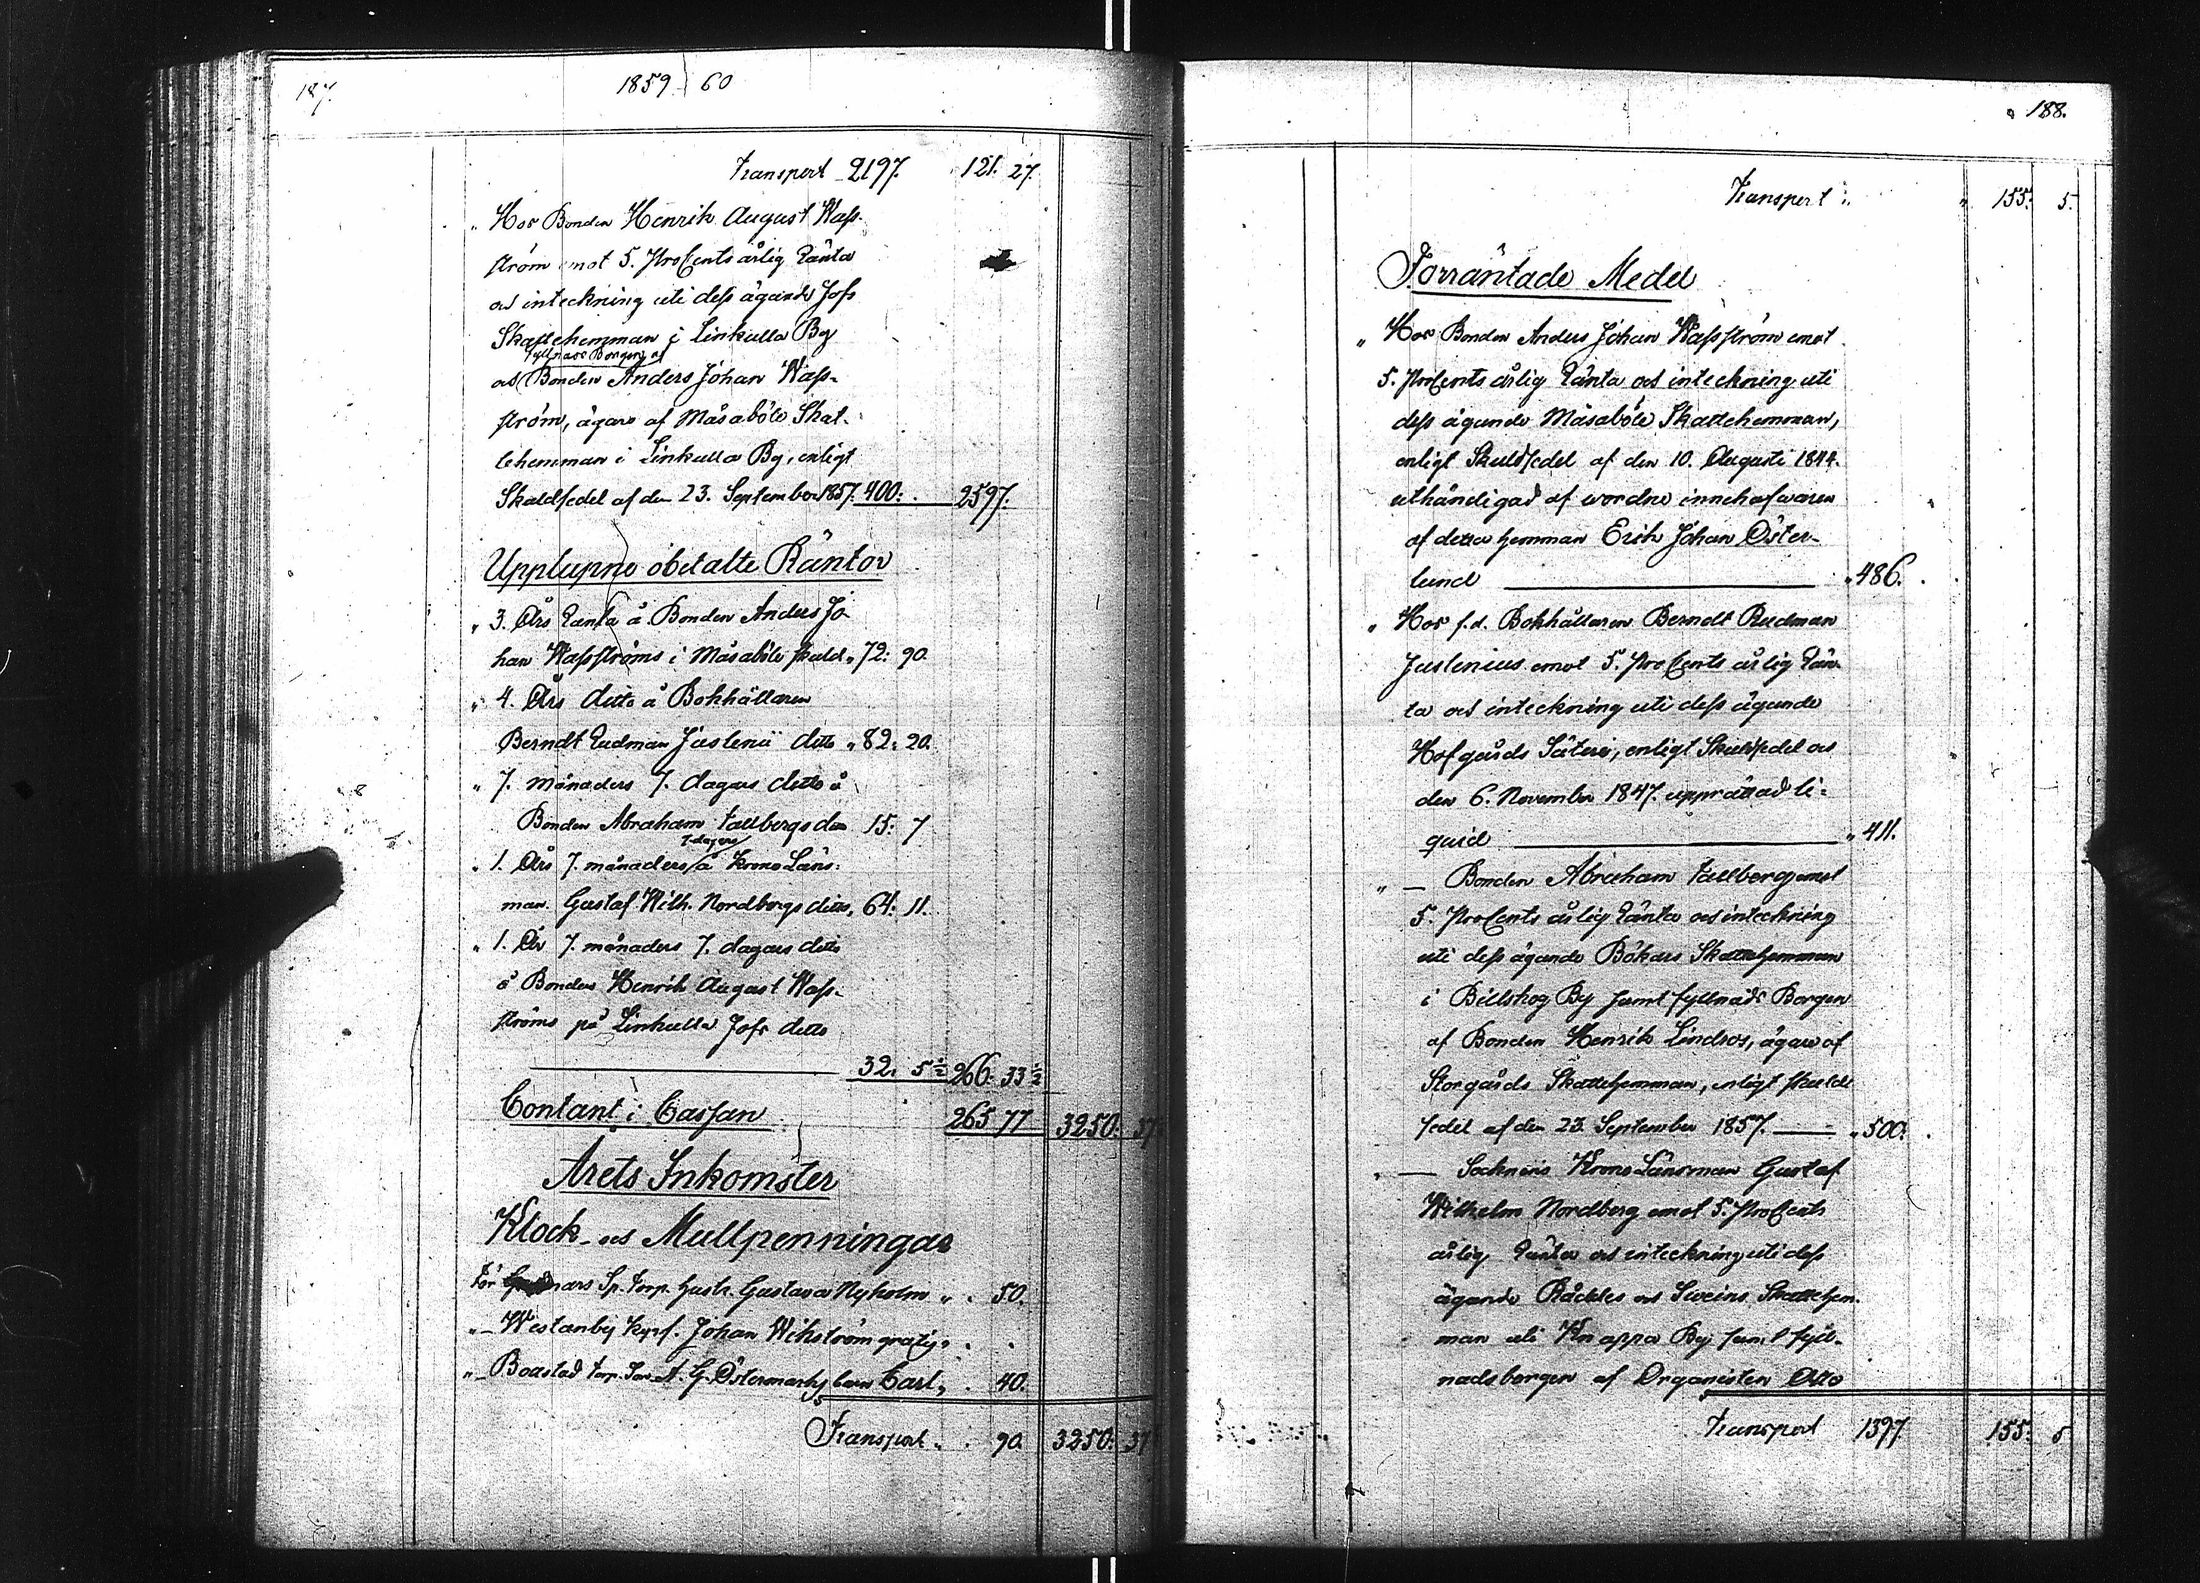 187.
1859 60
Transport 2197. 121. 27.
" Hos Bonden Henrik August Wass-
ström emot 5. ProCents årlig Ränta
och inteckning uti dess ägande Jofs
Skattehemman i Linkulla By
fyllnads Borgen af
och Bonden Anders Johan Wass-
ström, ägare af Måsaböle Skat-
tehemman i Linkulla By, enligt
Skuldsedel af den 23. September 1857. 400: . 2597.
Upplupne obetalte Räntor
" 3. Års Ränta å Bonden Anders Jo-
han Wassströms i Måsaböle skuld " 72: 90.
" 4. Års ditto å Bokhållaren
Berndt Rudman Juslenii ditto " 82: 20.
" 7. månaders 7. dagars ditto å
Bonden Abraham Tallbergs do 15: 7
7. dagars
" 1. Års 7. månaders å Krono Läns-
man Gustaf Wilh. Nordbergs ditto, 64: 11.
" 1. År 7. månaders 7. dagars ditto
å Bonden Henrik August Wass-
ströms på Linkulla Jofs ditto
32. 5 1/2 266: 33 1/2
Contant i Cassan 265 77 3250: 37
Årets Inkomster
Klock- och Mullpenningar
För Sp. torp. hustr. Gustava Nyholm " . 50.
"– Westanby Johan Wikström gratis " . .
"– Bollstad torp. A. G. Östermarks barn Carl " . 40.
Transport " . 90. 3250: 37
188.
Transport " " 155: 5.
Förräntade Medel
" Hos Bonden Anders Johan Wassström emot
5. ProCents årlig Ränta och inteckning uti
dess ägande Måsaböle Skattehemman,
enligt Skuldsedel af den 10. Augusti 1844.
uthändigad af wordne innehafwaren
af detta hemman Erik Johan Öster-
lund " 486. .
" Hos f.d. Bokhållaren Berndt Rudman
Juslenius emot 5. ProCents årlig Rän-
ta och inteckning uti dess ägande
Hofgårds Säteri, enligt Skuldsedel och
den 6. November 1847. upprättad li-
quid " 411.
" – Bonden Abraham Tallberg emot
5. ProCents årlig Ränta och inteckning
uti dess ägande Bökars Skattehemman
i Billskog By samt fyllnads Borgen
af Bonden Henrik Lindros, ägare af
Storgårds Skattehemman, enligt skuld-
sedel af den 23. September 1857. " 500: .
" – Socknens Krono Länsman Gustaf
Wilhelm Nordberg emot 5. ProCents
årlig Ränta och inteckning uti dess
ägande Räckles och Sweins Skattehem-
man uti Knappa By samt fyll-
nadsborgen af Organisten Otto
Transport 1397. 155: 5